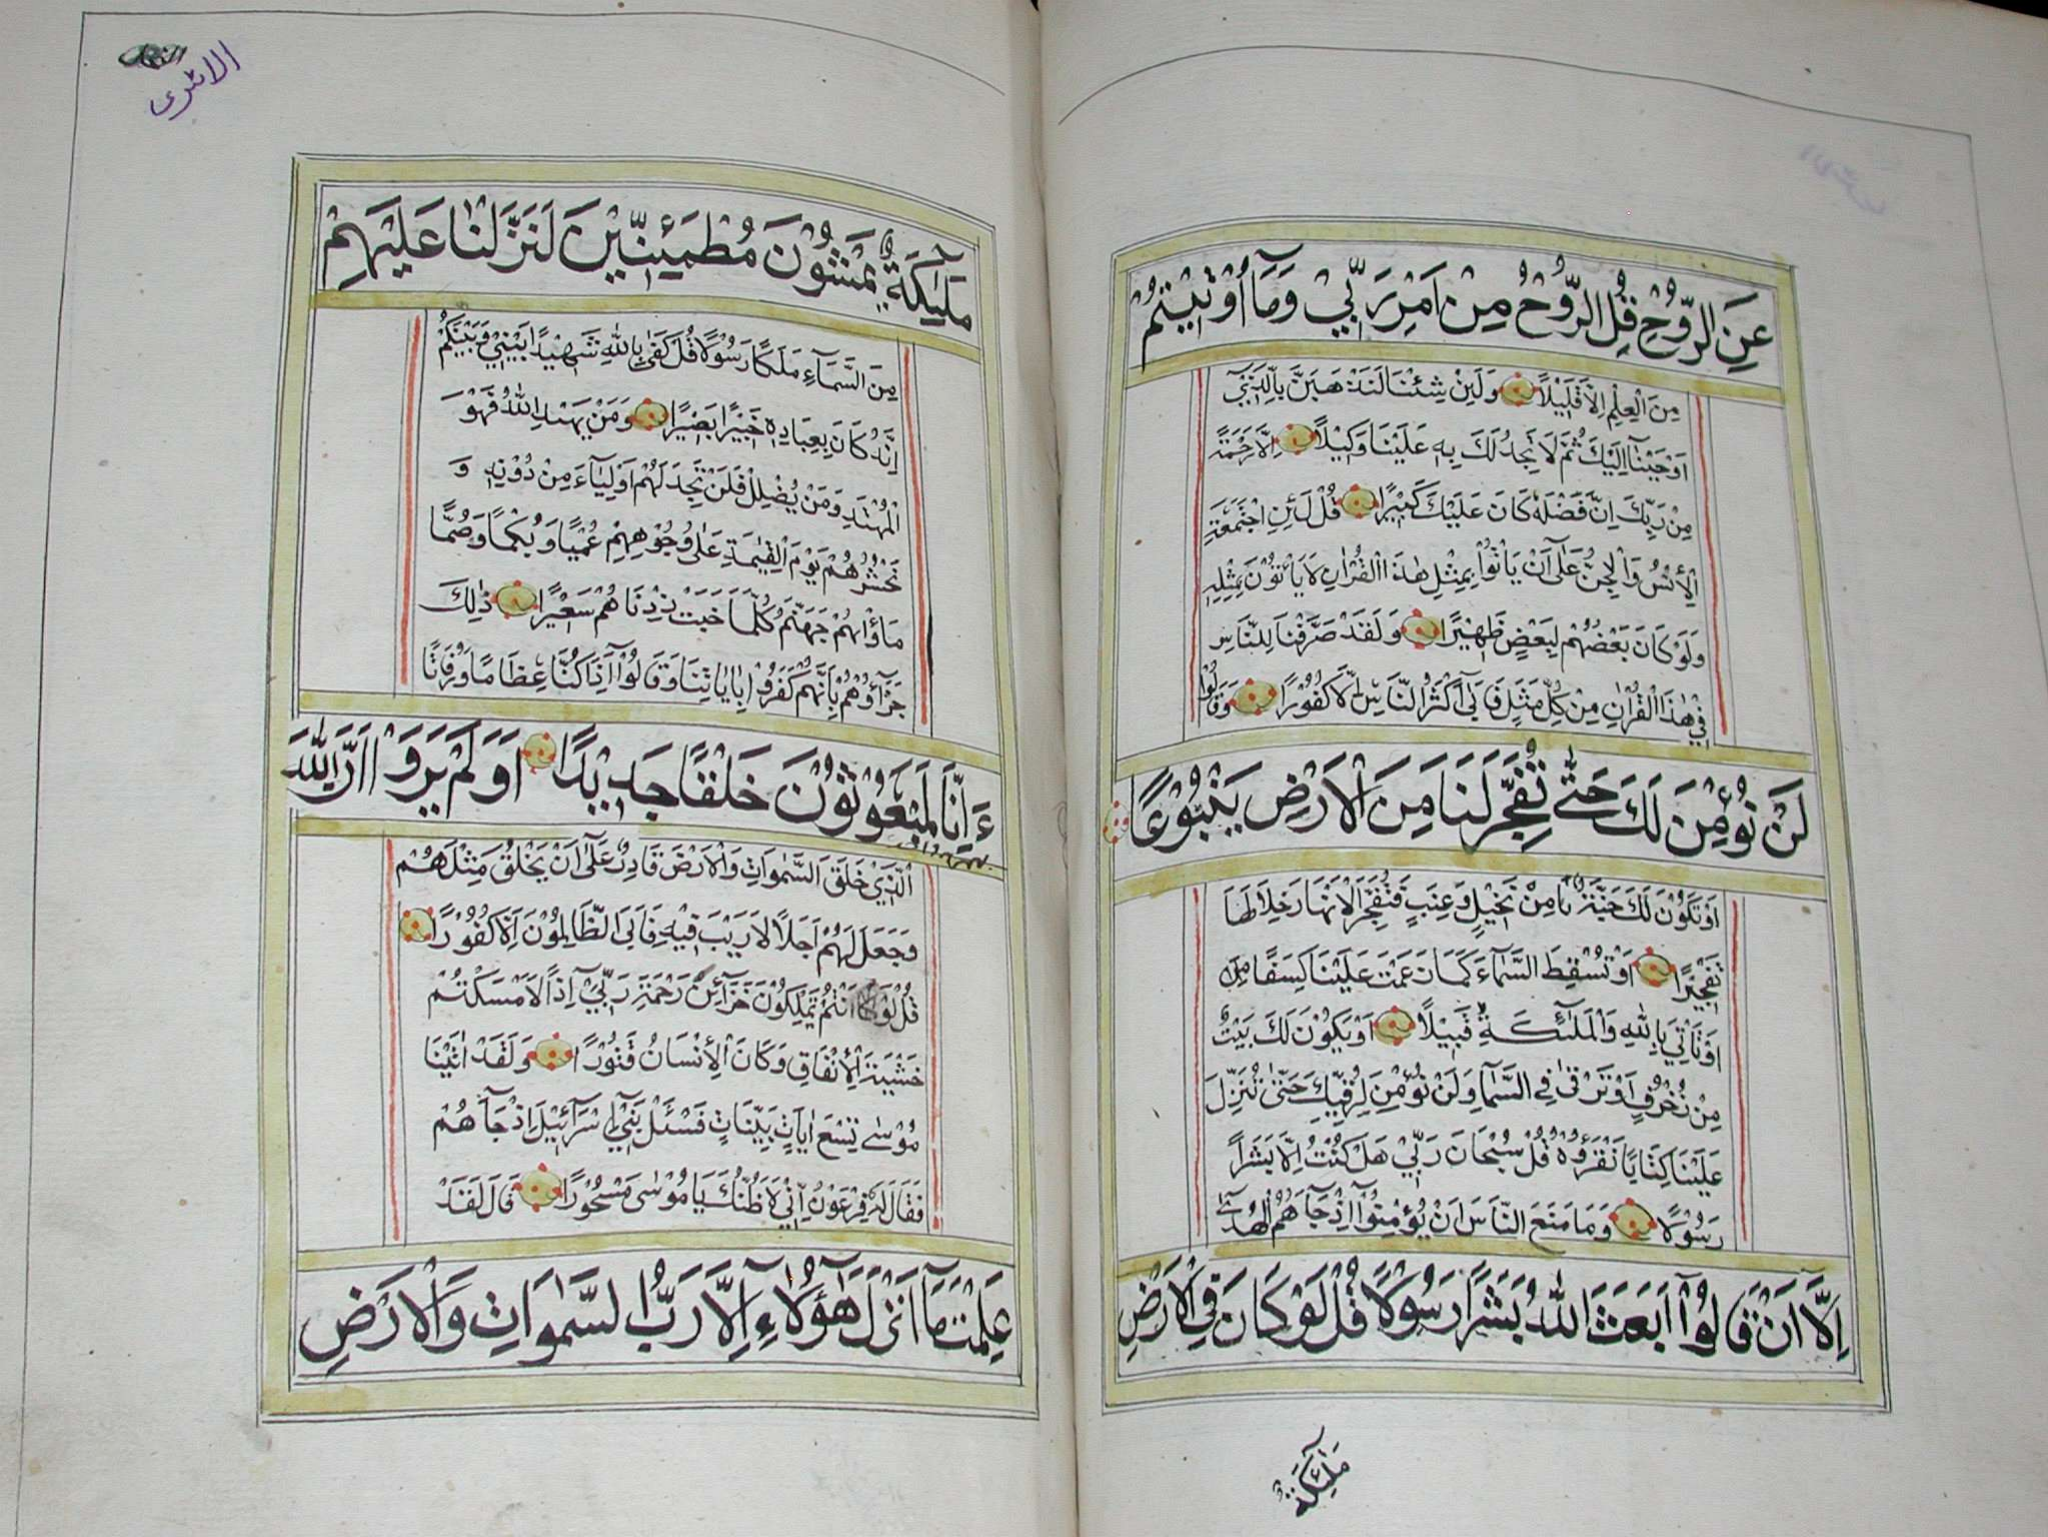 عَنِ الرُّوْحِ قُلِ الرُّوْحُ مِنْ اَمْرِ رَبِّيْ وَمَا اُوْتِيْتُمْ
مِنَ الْعِلْمِ اِلَّا قَلِيْلًا وَلَئِنْ شِئْنَا لَنَذْهَبَنَّ بِالَّذِيْ
اَوْحَيْنَا اِلَيْكَ ثُمَّ لَا تَجِدُ لَكَ بِهٖ عَلَيْنَا وَكِيْلًا اِلَّا رَحْمَةً
مِنْ رَبِّكَ اِنَّ فَضْلَهٗ كَانَ عَلَيْكَ كَبِيْرًا قُلْ لَئِنِ اجْتَمَعَتِ
الْاِنْسُ وَالْجِنُّ عَلٰٓى اَنْ يَاْتُوْا بِمِثْلِ هٰذَا الْقُرْاٰنِ لَا يَاْتُوْنَ بِمِثْلِهٖ
وَلَوْ كَانَ بَعْضُهُمْ لِبَعْضٍ ظَهِيْرًا وَلَقَدْ صَرَّفْنَا لِلنَّاسِ
فِيْ هٰذَا الْقُرْاٰنِ مِنْ كُلِّ مَثَلٍ فَاَبٰٓى اَكْثَرُ النَّاسِ اِلَّا كُفُوْرًا وَقَالُوْا
لَنْ نُؤْمِنَ لَكَ حَتّٰى تُفَجِّرَ لَنَا مِنَ الْاَرْضِ يَنْبُوْعًا
اَوْ تَكُوْنَ لَكَ جَنَّةٌ مِنْ نَخِيْلٍ وَعِنَبٍ فَتُفَجِّرَ الْاَنْهَارَ خِلَالَهَا
تَفْجِيْرًا اَوْ تُسْقِطَ السَّمَآءَ كَمَا زَعَمْتَ عَلَيْنَا كِسَفًا
اَوْ تَاْتِيَ بِاللّٰهِ وَالْمَلٰٓئِكَةِ قَبِيْلًا اَوْ يَكُوْنَ لَكَ بَيْتٌ
مِنْ زُخْرُفٍ اَوْ تَرْقٰى فِي السَّمَآءِ وَلَنْ نُؤْمِنَ لِرُقِيِّكَ حَتّٰى تُنَزِّلَ
عَلَيْنَا كِتَابًا نَقْرَؤُهٗ قُلْ سُبْحَانَ رَبِّيْ هَلْ كُنْتُ اِلَّا بَشَرًا
رَسُوْلًا وَمَا مَنَعَ النَّاسَ اَنْ يُؤْمِنُوْٓا اِذْ جَآءَهُمُ الْهُدٰٓى
اِلَّآ اَنْ قَالُوْٓا اَبَعَثَ اللّٰهُ بَشَرًا رَسُوْلًا قُلْ لَوْ كَانَ فِي الْاَرْضِ
مَلٰٓئِكَةٌ
الاسرى
مَلٰٓئِكَةٌ يَمْشُوْنَ مُطْمَئِنِّيْنَ لَنَزَّلْنَا عَلَيْهِمْ
مِنَ السَّمَآءِ مَلَكًا رَسُوْلًا قُلْ كَفٰى بِاللّٰهِ شَهِيْدًا بَيْنِيْ وَبَيْنَكُمْ
اِنَّهٗ كَانَ بِعِبَادِهٖ خَبِيْرًا بَصِيْرًا وَمَنْ يَهْدِ اللّٰهُ فَهُوَ
الْمُهْتَدِ وَمَنْ يُضْلِلْ فَلَنْ تَجِدَ لَهُمْ اَوْلِيَآءَ مِنْ دُوْنِهٖ وَ
نَحْشُرُهُمْ يَوْمَ الْقِيٰمَةِ عَلٰى وُجُوْهِهِمْ عُمْيًا وَبُكْمًا وَصُمًّا
مَاْوٰىهُمْ جَهَنَّمُ كُلَّمَا خَبَتْ زِدْنَاهُمْ سَعِيْرًا ذٰلِكَ
جَزَآؤُهُمْ بِاَنَّهُمْ كَفَرُوْا بِاٰيَاتِنَا وَقَالُوْٓا ءَاِذَا كُنَّا عِظَامًا وَرُفَاتًا
ءَاِنَّا لَمَبْعُوْثُوْنَ خَلْقًا جَدِيْدًا اَوَلَمْ يَرَوْا اَنَّ اللّٰهَ
الَّذِيْ خَلَقَ السَّمٰوَاتِ وَالْاَرْضَ قَادِرٌ عَلٰٓى اَنْ يَخْلُقَ مِثْلَهُمْ
وَجَعَلَ لَهُمْ اَجَلًا لَا رَيْبَ فِيْهِ فَاَبَى الظَّالِمُوْنَ اِلَّا كُفُوْرًا
قُلْ لَوْ اَنْتُمْ تَمْلِكُوْنَ خَزَآئِنَ رَحْمَةِ رَبِّيْٓ اِذًا لَاَمْسَكْتُمْ
خَشْيَةَ الْاِنْفَاقِ وَكَانَ الْاِنْسَانُ قَتُوْرًا وَلَقَدْ اٰتَيْنَا
مُوْسٰى تِسْعَ اٰيَاتٍ بَيِّنَاتٍ فَسْئَلْ بَنِيْٓ اِسْرَآئِيْلَ اِذْ جَآءَهُمْ
فَقَالَ لَهٗ فِرْعَوْنُ اِنِّيْ لَاَظُنُّكَ يَا مُوْسٰى مَسْحُوْرًا قَالَ لَقَدْ
عَلِمْتَ مَآ اَنْزَلَ هٰٓؤُلَآءِ اِلَّا رَبُّ السَّمٰوَاتِ وَالْاَرْضِ